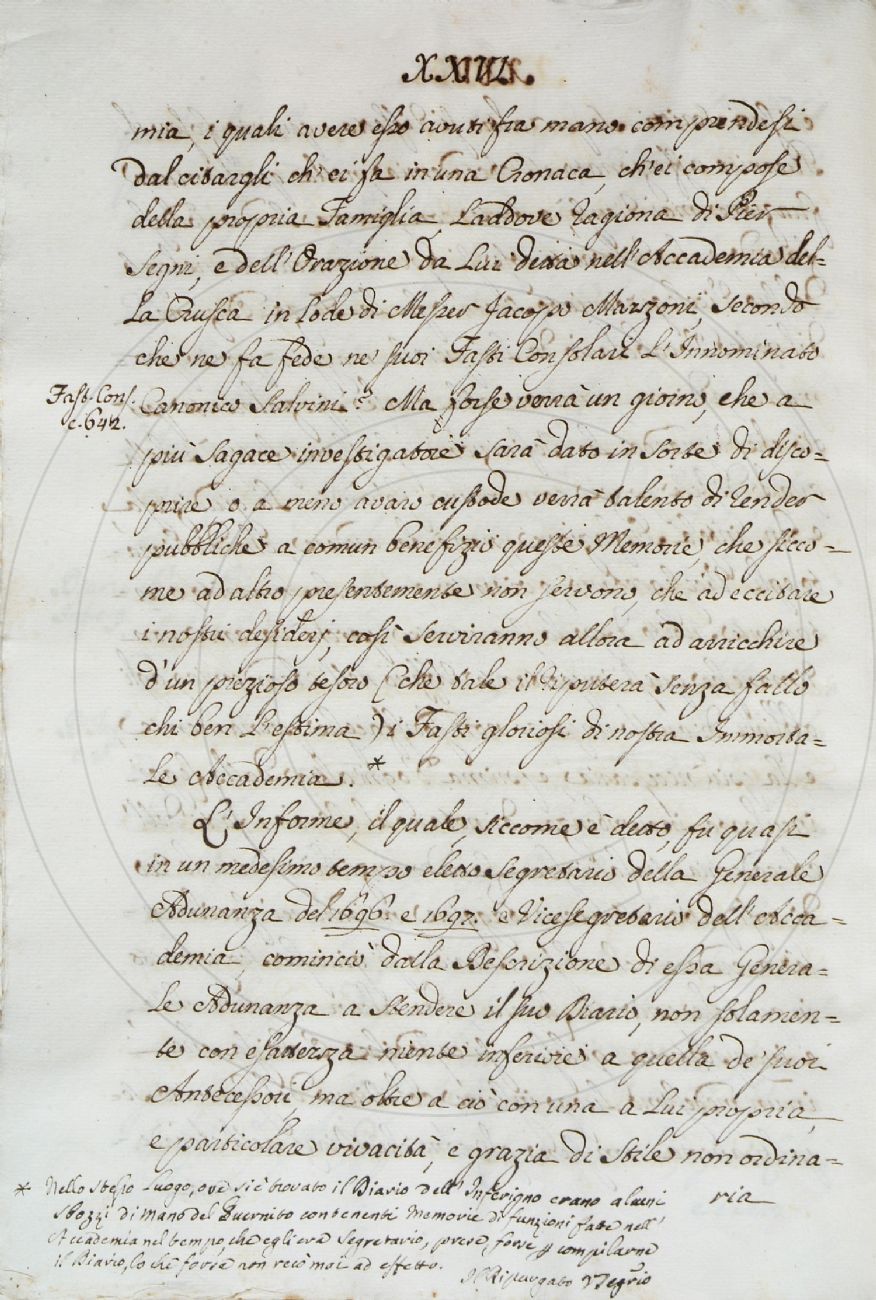 mia, i quali avere esso avuti fra mano comprendesi
dal citargli ch'ei fa in una Cronaca, ch'ei compose
della propria Famiglia, Laddove ragiona di Pier
Segni, e dell'Orazione da Lui detta nell'Accademia del-
la Crusca in lode di Messer Jacopo Mazzoni, secondo
che ne fa fede ne' suoi Fasti Consolari L'Innominato
Fast. Cons.
c. 642.
Canonico Salvini. Ma forse verrà un giorno, che a
più sagace investigatore sarà dato in sorte di disco-
prire o a meno avaro custode verrà talento di render
pubbliche a comun benefizio queste Memorie, che sicco-
me ad altro presentemente non servono, che ad eccitare
i nostri desiderj, così serviranno allora ad arricchire
d'un prezioso tesoro (che tale il riputerà senza fallo
chi ben L'estima) i Fasti gloriosi di nostra Immorta-
le Accademia. *
L'Informe, il quale, siccome è detto, fu quasi
in un medesimo tempo eletto Segretario della Generale
Adunanza del 1696. e 1697. e Vicesegretario dell'Acca-
demia, cominciò dalla Descrizione di essa Genera-
le Adunanza a stendere il suo Diario, non solamen-
te con esattezza niente inferiore a quella de' suoi
Antecessori, ma oltre a ciò con una a Lui propria,
e particolare vivacità, e grazia di Stile non ordina-
ria
* Nello stesso Luogo, ove si è trovato il Diario dell'Inferigno erano alcuni
Sbozzi di mano del Guernito contenenti Memorie di funzioni fatte nell'
Accademia nel tempo, che egli era Segretario, prese forse p compilarne
il Diario, lo che forse non recò mai ad effetto.
Il Ripurgato Segrio